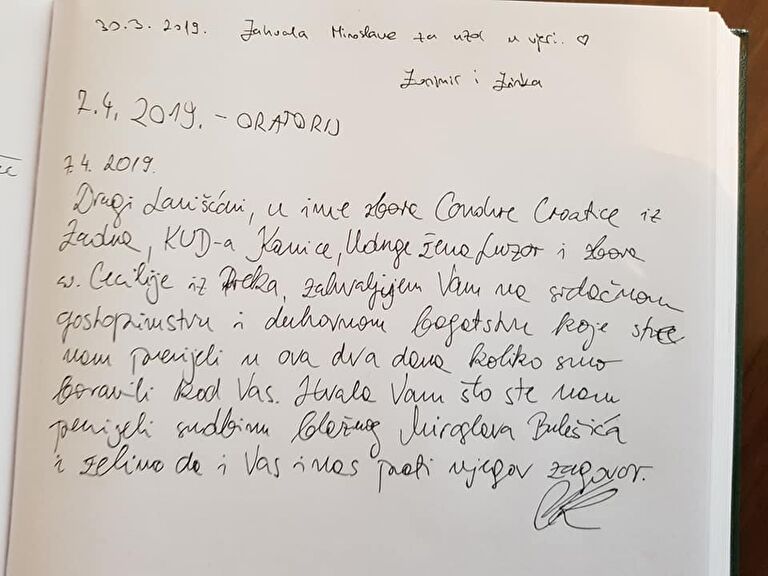 30.3. 2019. Zahvala Miroslave za uzor u vjeri. ♡
Zvonimir i Zinka
7.4. 2019. - ORATORIJ
7.4. 2019.
Dragi Lanišćani, u ime zbora Condure Croatice iz
Zadra, KUD-a Kanica, Udruge žena Luzor i zbora
sv. Cecilije iz Preka, zahvaljujem Vam na srdačnom
gostoprimstvu i duhovnom bogatstvu koje ste
nam prenijeli u ova dva dana koliko smo
boravili kod Vas. Hvala Vam što ste nam
prenijeli sudbinu blaženog Miroslava Bulešića
i želimo da i Vas i nas prati njegov zagovor.